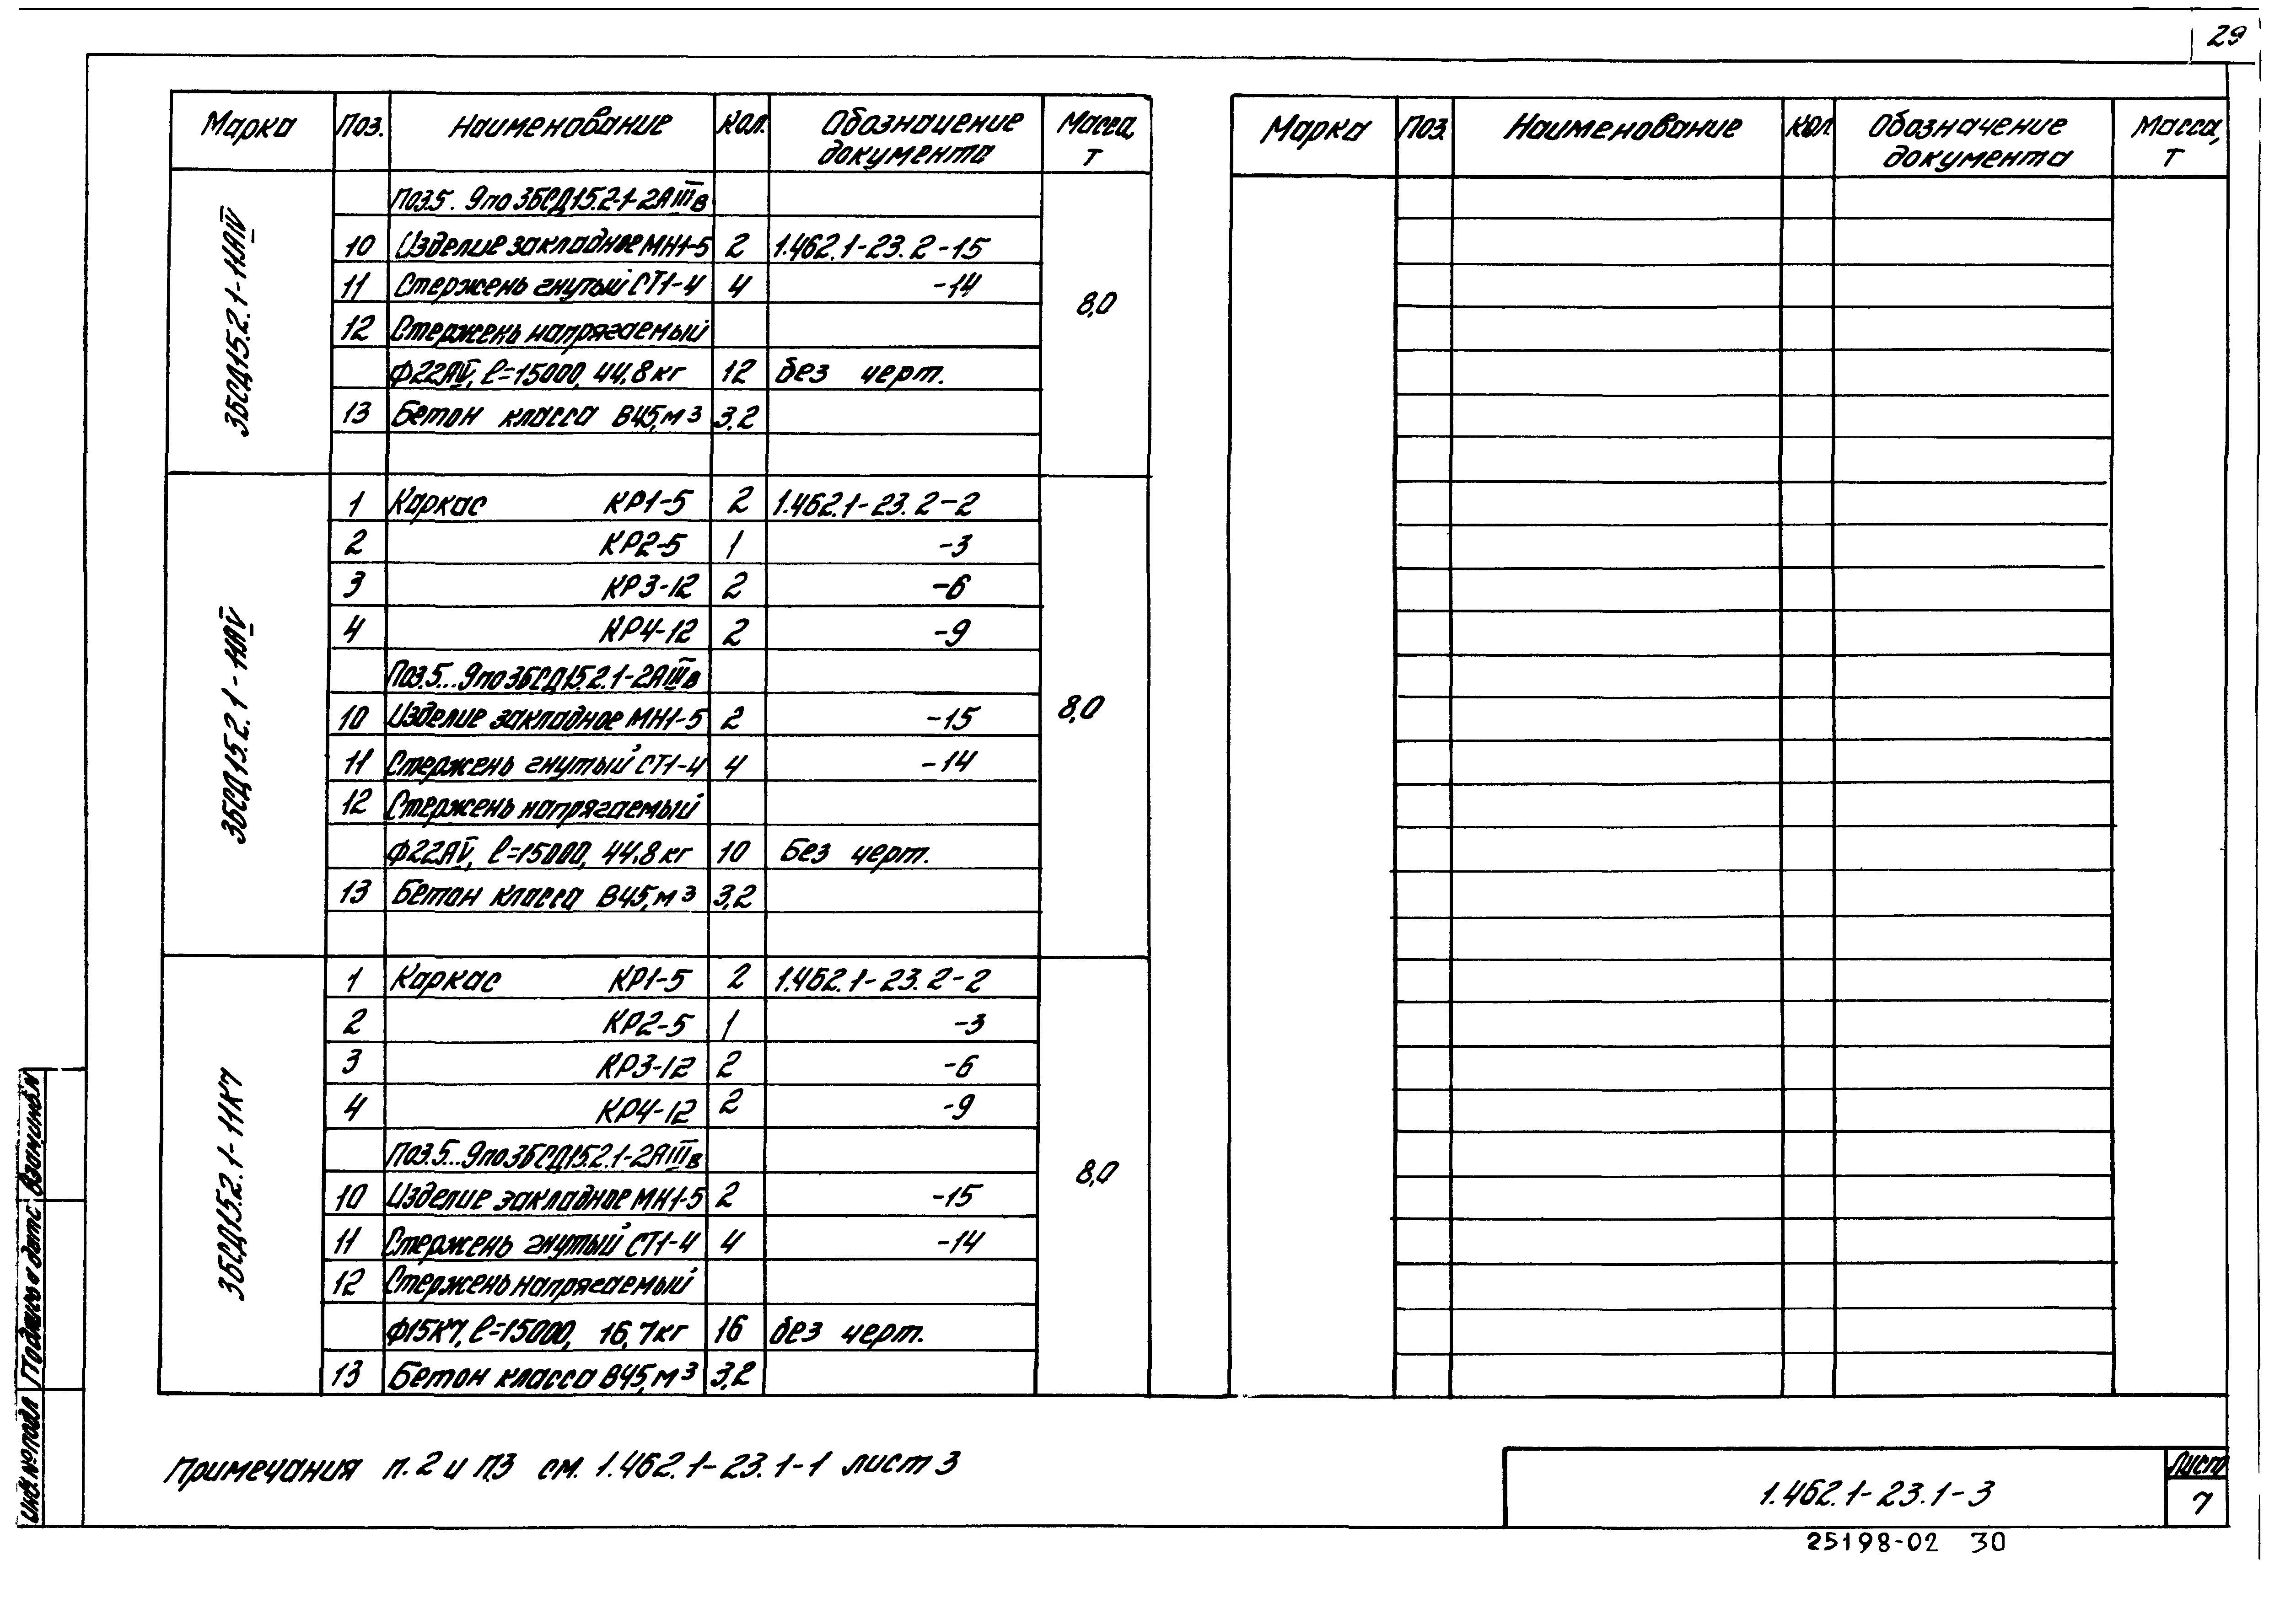 29
Марка Поз. Наименование Кол. Обозначение документа Масса, т
3БСД15.2.1-11АIV
Поз.5..9 по 3БСД15.2-1-2АIIIв
10 Изделие закладное МН1-5 2 1.462.1-23.2-15
11 Стержень гнутый СТ1-4 4 -14
8,0
12 Стержень напрягаемый
Ф22АIV, ℓ=15000, 44,8кг 12 без черт.
13 Бетон класса В45, м3 3,2
3БСД15.2.1-11АV
1 Каркас КР1-5 2 1.462.1-23.2-2
2 КР2-5 1 -3
3 КР3-12 2 -6
4 КР4-12 2 -9
Поз.5...9 по 3БСД15.2.1-2АIIIв
10 Изделие закладное МН1-5 2 -15
8,0
11 Стержень гнутый СТ1-4 4 -14
12 Стержень напрягаемый
Ф22АV, ℓ=15000, 44,8кг 10 Без черт.
13 Бетон класса В45, м3 3,2
3БСД15.2.1-11К7
1 Каркас КР1-5 2 1.462.1-23.2-2
2 КР2-5 1 -3
3 КР3-12 2 -6
4 КР4-12 2 -9
Поз.5...9 по 3БСД15.2.1-2АIIIв
8,0
10 Изделие закладное МН1-5 2 -15
11 Стержень гнутый СТ1-4 4 -14
12 Стержень напрягаемый
Ф15К7, ℓ=15000, 16,7кг 16 без черт.
13 Бетон класса В45, м3 3,2
Марка Поз. Наименование Кол. Обозначение документа Масса, т
Примечания п.2 и п3 см. 1.462.1-23.1-1 лист 3
1.462.1-23.1-3
Лист
7
25198-02 30
Инв.№подл Подпись и дата Взам.инв.№